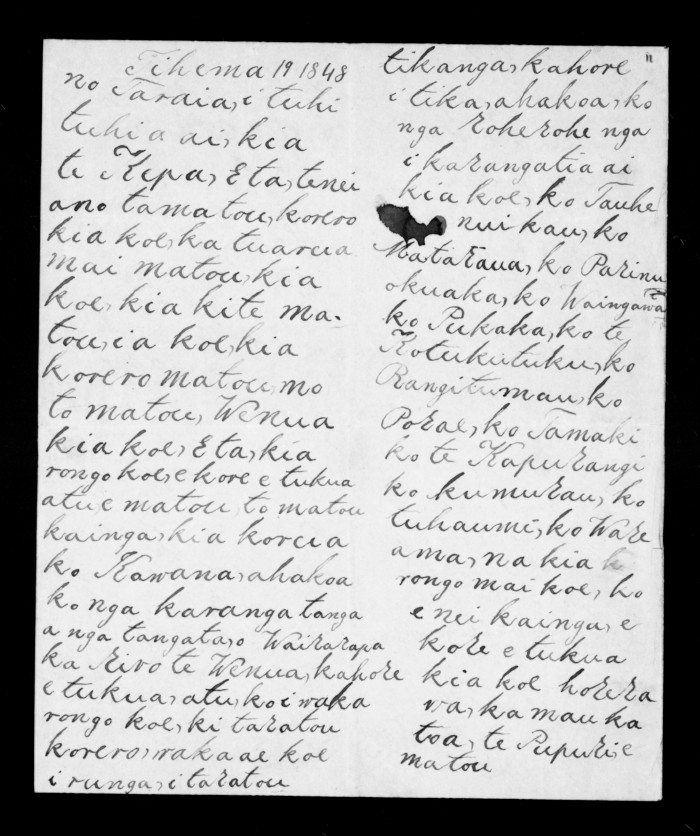 Tihema 19 1848
no Taraia, i tuhi
tuhia ai, kia
te Kepa, E ta, tenei
ano ta matou, korero
kia koe, ka tuarua
mai matou, kia
koe, kia kite ma-
tou, ia koe, kia
korero matou, mo
to matou, Wenua
kia koe, E ta, kia
rongo koe, e kore e tukua
atu e matou, to matou
kainga, kia korua
ko Kawana, ahakoa
ko nga karanga tanga
a nga tangata, o Wairarapa
ka rivo te Wenua, kahore
e tukua, atu, ko i waka
rongo koe, ki ta ratou
korero, waka ae koe
i runga, i ta ratou
11
tikanga, kahore
i tika, ahakoa, ko
nga roherohe nga
i karangatia ai
kia koe, ko Tauhe
nui kau, ko
Mataraua, ko Parinu
okuaka, ko Waingawa
ko Pukaka, ko te
Kotukutuku, ko
Rangitumau, ko
Porae, ko Tamaki
ko te Kapurangi
ko kumurau, ko
tuhaumi, ko Ware
ama, na kia
rongo mai koe, ko
e nei kainga, e
kore e tukua
kia koe horera
wa, ka mau ka
toa, te Pupuri, e
matou